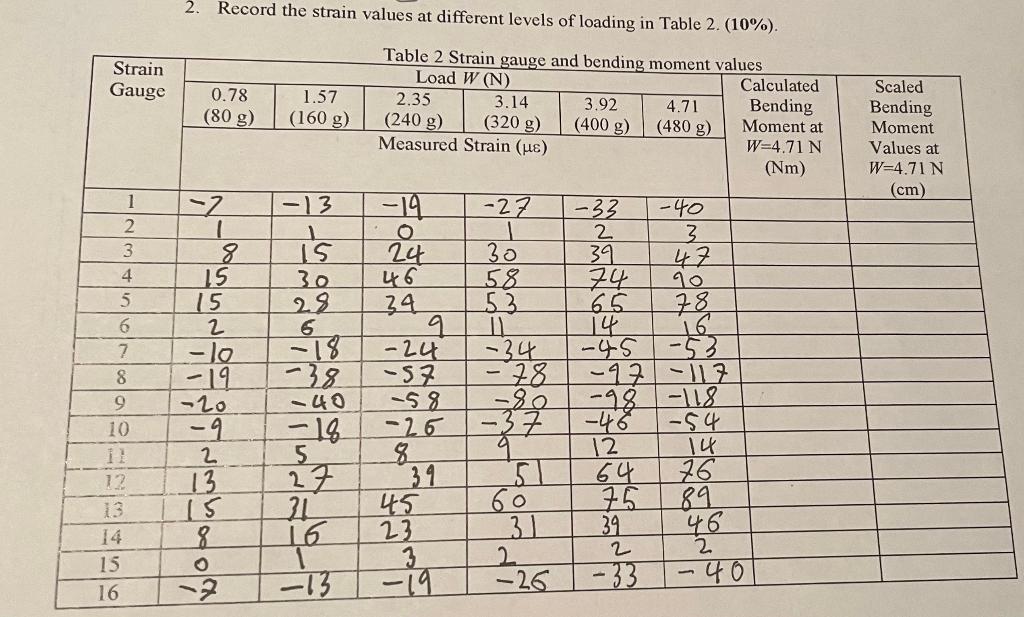 2. Record the strain values at different levels of loading in Table 2. (10%).
Table 2 Strain gauge and bending moment values
Strain Gauge Load W (N) Calculated Bending Moment at W=4.71 N (Nm) Scaled Bending Moment Values at W=4.71 N (cm)
0.78 (80 g) 1.57 (160 g) 2.35 (240 g) 3.14 (320 g) 3.92 (400 g) 4.71 (480 g)
Measured Strain (με)
1 -7 -13 -19 -27 -33 -40
2 1 1 0 1 2 3
3 8 15 24 30 39 47
4 15 30 46 58 74 90
5 15 28 39 53 65 78
6 2 6 9 11 14 16
7 -10 -18 -24 -34 -45 -53
8 -19 -38 -57 -78 -97 -117
9 -20 -40 -58 -80 -98 -118
10 -9 -18 -26 -37 -46 -54
11 2 5 8 9 12 14
12 13 27 39 51 64 76
13 15 31 45 60 75 89
14 8 16 23 31 39 46
15 0 1 3 2 2 2
16 -7 -13 -19 -26 -33 -40